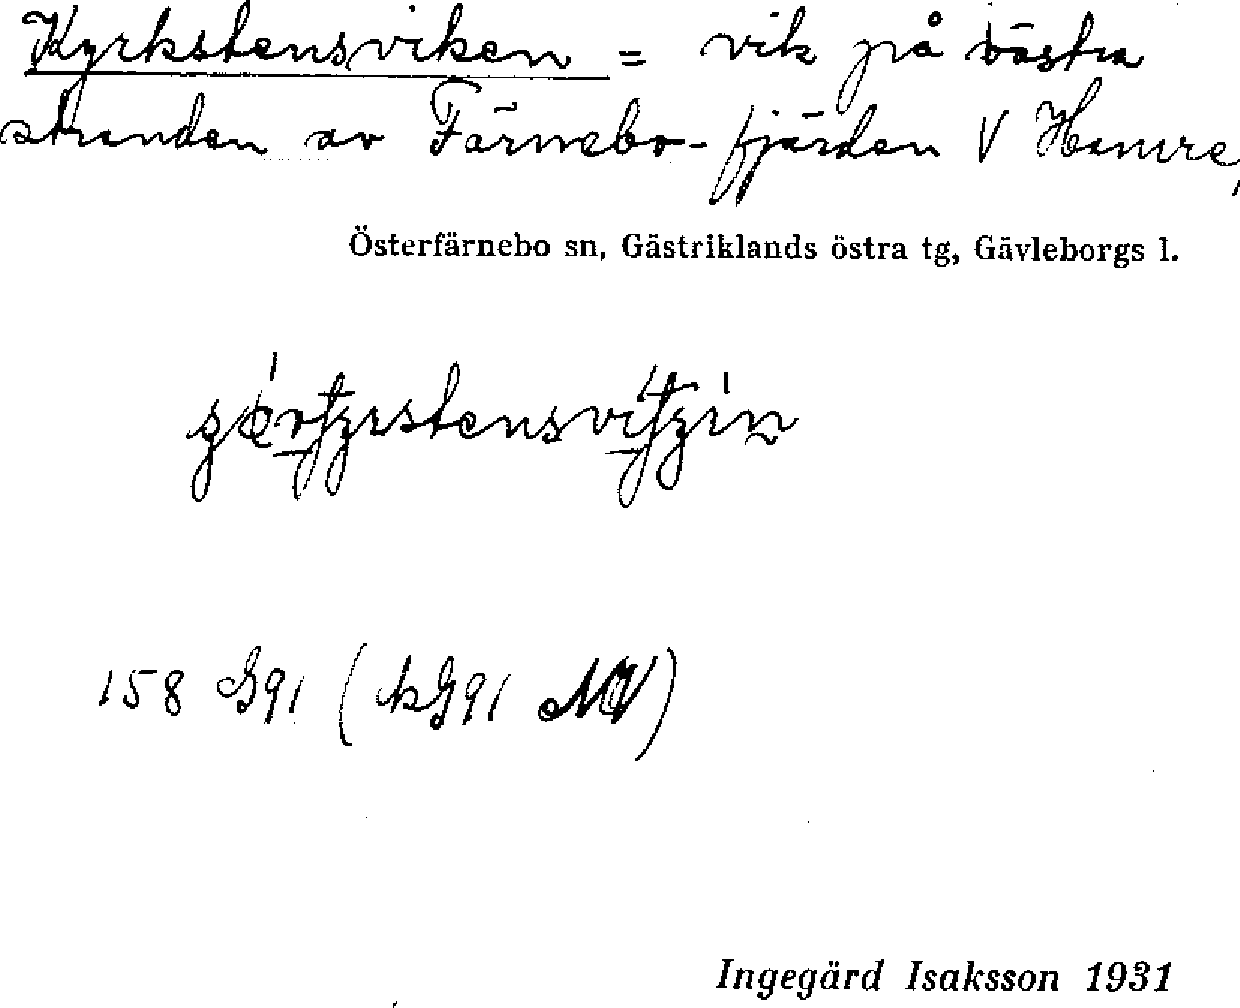 Kyrkstensviken = vik på västra
stranden av Färnebo-fjärden V Hamre,
Österfärnebo sn, Gästriklands östra tg, Gävleborgs l.
158 G91 (kG91 NV)
Ingegärd Isaksson 1931